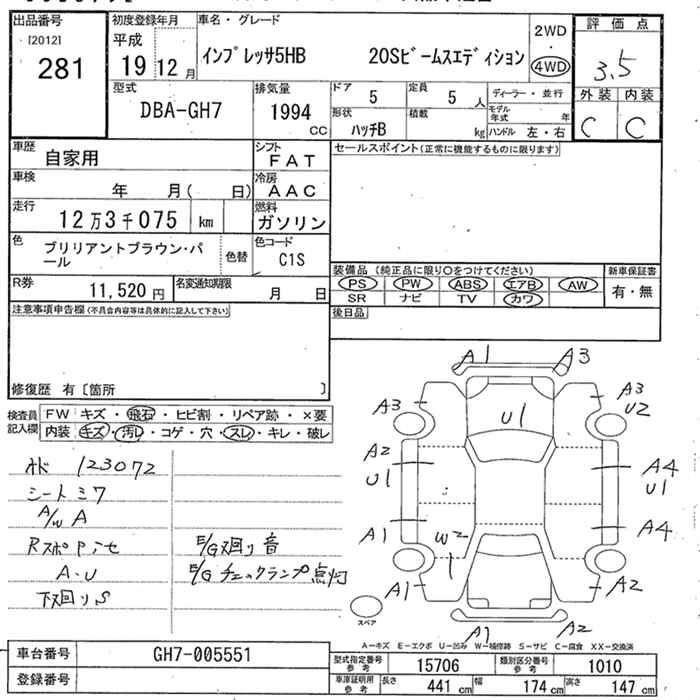 出品番号
[2012]
281
初度登録年月
平成
19年12月
車名・グレード
インプレッサ5HB 20Sビームスエディション
2WD
・
4WD
評価点
3.5
外装 内装
C C
型式
DBA-GH7
排気量
1994
CC
ドア
5
定員
5人
形状
ハッチB
積載
kg
ディーラー・並行
モデル年式 年
ハンドル 左・右
車歴
自家用
シフト
FAT
車検
年 月( 日)
冷房
AAC
走行
12万3千075 km
燃料
ガソリン
色
ブリリアントブラウン・パール
色替
色コード
C1S
R券
11,520円
名変通知期限
月 日
セールスポイント(正常に機能するものに限ります)
装備品 (純正品に限り〇をつけてください)
PS PW ABS エアB AW
SR ナビ TV カワ
新車保証書
有・無
後日品
注意事項申告欄(不具合内容等は具体的に記入して下さい)
修復歴 有〔箇所 〕
検査員記入欄
FW キズ・飛石・ヒビ割・リペア跡・×要
内装 キズ・汚レ・コゲ・穴・スレ・キレ・破レ
123072
シートミワ
A/W A
A・U
下廻りS
E/G廻り音
E/Gチェックランプ点灯
A1 A3
A3
A3
U2
U1
A2
U1
A4
U1
A1
W2
A4
A1
A2
A1 A2
スペア
A-キズ E-エクボ U-凹み W-補修跡 S-サビ C-腐食 XX-交換済
車台番号
GH7-005551
登録番号
型式指定番号 参考
15706
類別区分番号 参考
1010
車庫証明用 参考
長さ 441 cm
幅 174 cm
高さ 147 cm